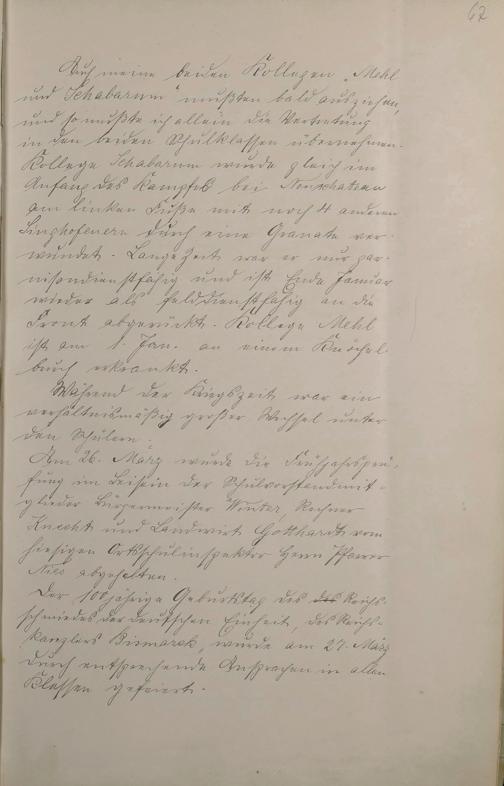 67
Auch meine beiden Kollegen „Mehl
und Schabarum“ mußten bald ausziehen,
und so mußte ich allein die Vertretung
in den beiden Schulklassen übernehmen.
Kollege Schabarum wurde gleich im
Anfang des Kampfes bei Neufchateau
am linken Fuße mit noch 4 anderen
Singhofenern durch eine Granate ver-
wundet. Lange Zeit war er nur gar-
nisondienstfähig und ist Ende Januar
wieder als felddienstfähig an die
Front abgerückt. Kollege Mehl
ist am 1. Jan. an einem Knöchel-
bruch erkrankt.
Während der Kriegszeit war ein
verhältnismäßig großer Wechsel unter
den Schülern.
Am 26. März wurde die Frühjahrsprü-
fung im Beisein der Schulvorstandmit-
glieder Bürgermeister Winter, Rechner
Knecht und Landwirt Gotthardt vom
hiesigen Ortsschulinspektor Herrn Pfarrer
abgehalten.
Der 100jährige Geburtstag des des Reichs-
schmiedes der deutschen Einheit, des Reichs-
kanzlers Bismarck, wurde am 27. März
durch entsprechende Ansprachen in allen
Klassen gefeiert.